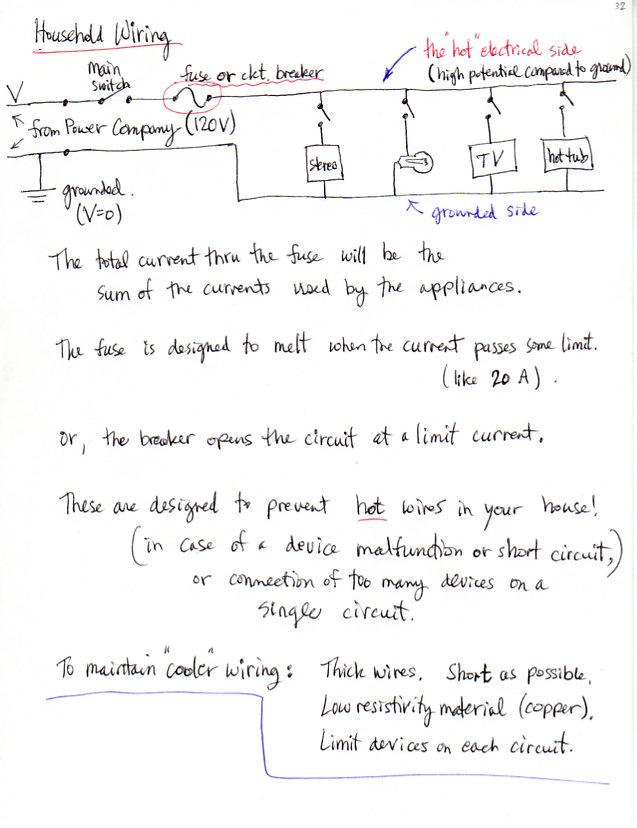 32
Household Wiring
the "hot" electrical side
(high potential compared to ground)
main
switch
fuse or ckt. breaker
V
from Power Company (120V)
stereo
TV
hot tub
grounded.
(V=0)
grounded side
The total current thru the fuse will be the
sum of the currents used by the appliances.
The fuse is designed to melt when the current passes some limit.
(like 20 A).
Or, the breaker opens the circuit at a limit current.
These are designed to prevent hot wires in your house!
(in case of a device malfunction or short circuit,)
or connection of too many devices on a
single circuit.
To maintain "cooler" wiring: Thick wires. Short as possible.
Low resistivity material (copper).
Limit devices on each circuit.